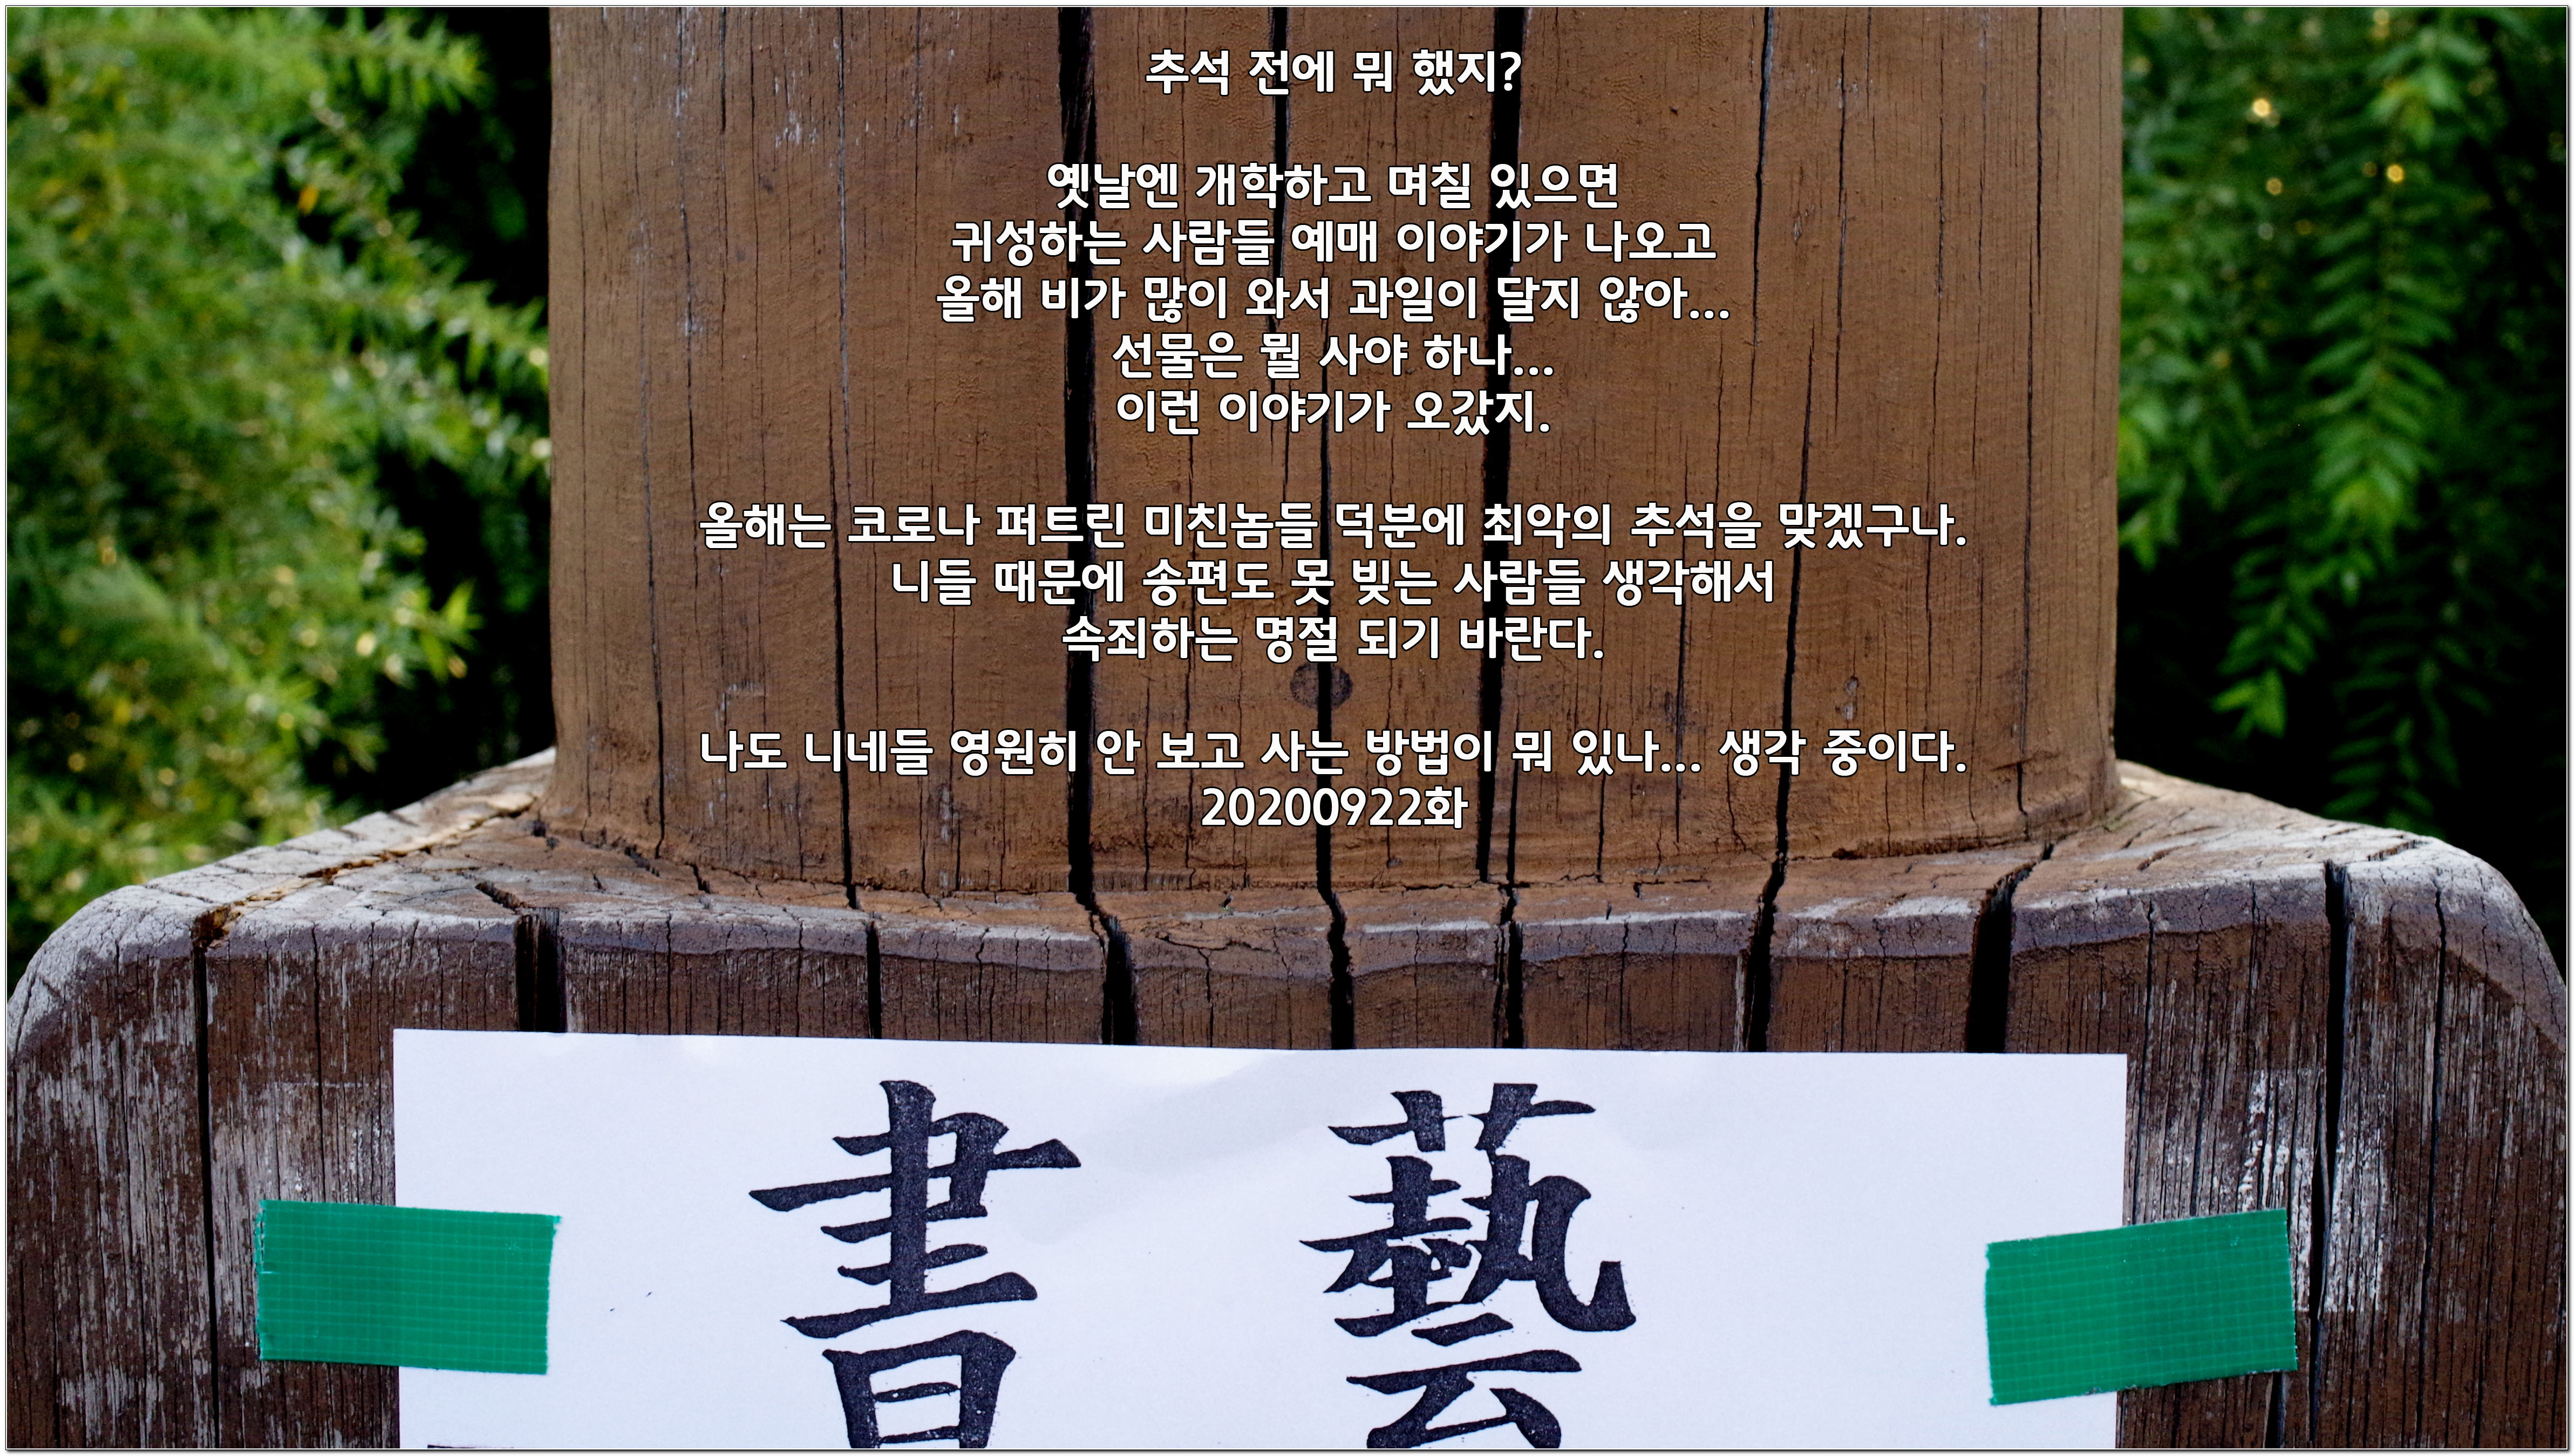 추석 전에 뭐 했지?
옛날엔 개학하고 며칠 있으면
귀성하는 사람들 예매 이야기가 나오고
올해 비가 많이 와서 과일이 달지 않아...
선물은 뭘 사야 하나...
이런 이야기가 오갔지.
올해는 코로나 퍼트린 미친놈들 덕분에 최악의 추석을 맞겠구나.
니들 때문에 송편도 못 빚는 사람들 생각해서
속죄하는 명절 되기 바란다.
나도 니네들 영원히 안 보고 사는 방법이 뭐 있나... 생각 중이다.
20200922화
書藝